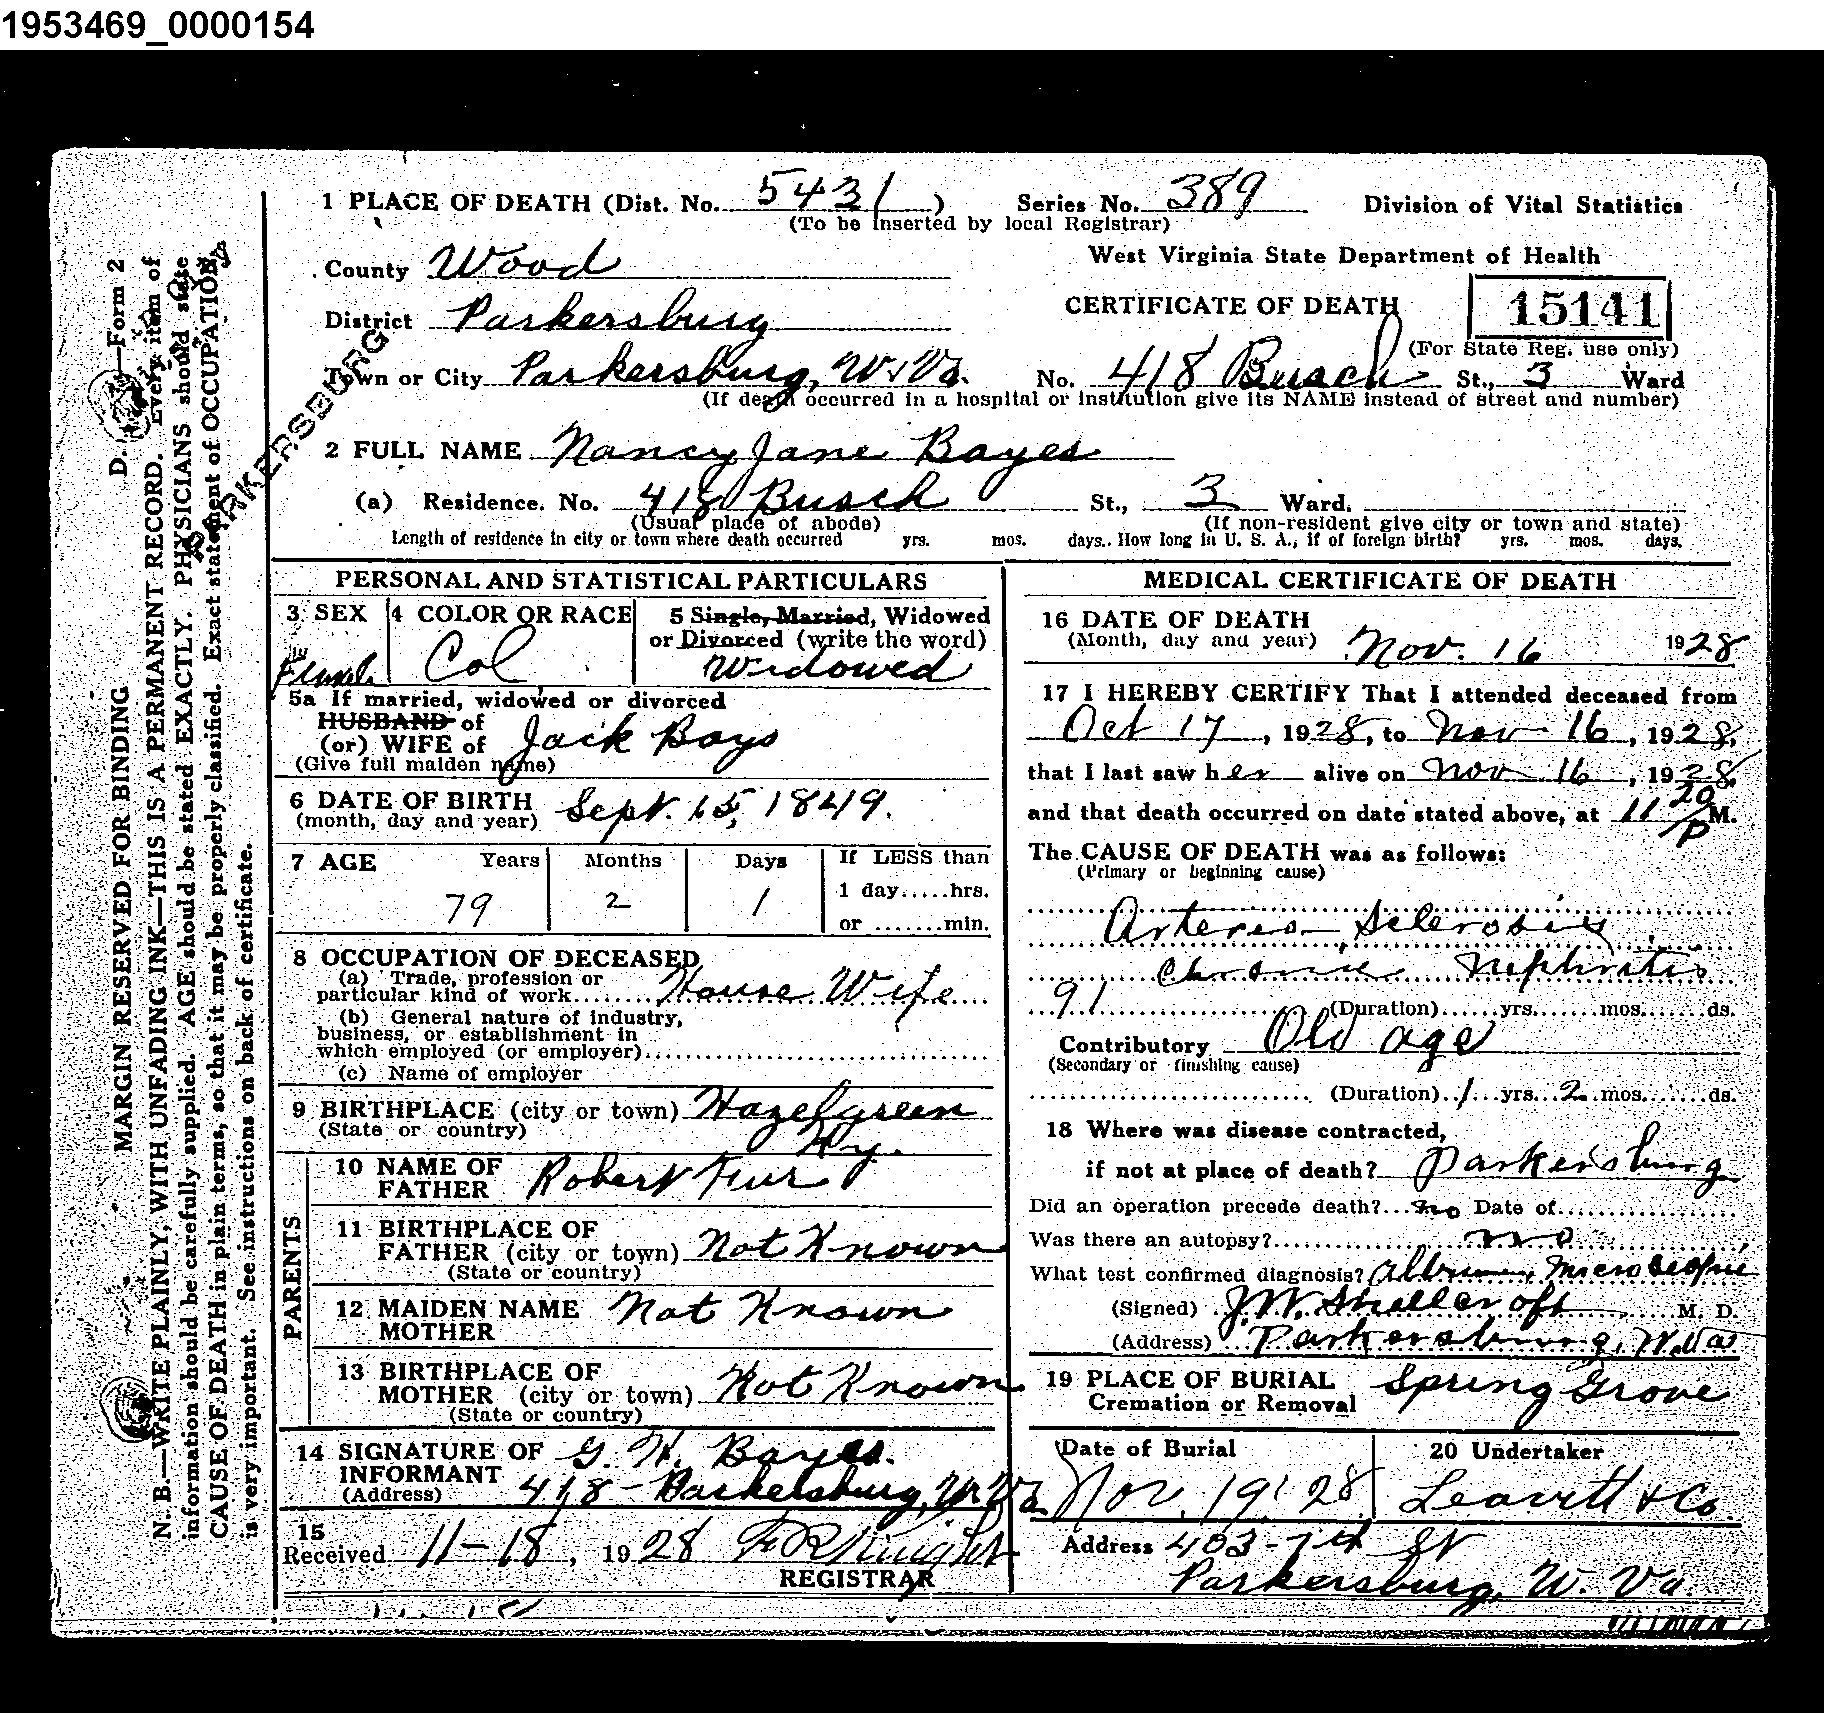 1953469_0000154
1 PLACE OF DEATH (Dist. No. 5431) Series No. 389 Division of Vital Statistics
(To be inserted by local Registrar)
County Wood West Virginia State Department of Health
District Parkersburg CERTIFICATE OF DEATH 15141
(For State Reg. use only)
Town or City Parkersburg, W. Va. No. 418 Busch St., 3 Ward
(If death occurred in a hospital or institution give its NAME instead of street and number)
PARKERSBURG
2 FULL NAME Nancy Jane Bayes
(a) Residence. No. 418 Busch St., 3 Ward.
(Usual place of abode) (If non-resident give city or town and state)
Length of residence in city or town where death occurred yrs. mos. days. How long in U. S. A., if of foreign birth? yrs. mos. days.
PERSONAL AND STATISTICAL PARTICULARS
3 SEX 4 COLOR OR RACE 5 Single, Married, Widowed
or Divorced (write the word)
Female Col Widowed
5a If married, widowed or divorced
HUSBAND of
(or) WIFE of Jack Bays
(Give full maiden name)
6 DATE OF BIRTH Sept. 15, 1849.
(month, day and year)
7 AGE Years Months Days If LESS than
79 2 1 1 day.....hrs.
or .......min.
8 OCCUPATION OF DECEASED
(a) Trade, profession or
particular kind of work House Wife
(b) General nature of industry,
business, or establishment in
which employed (or employer)
(c) Name of employer
9 BIRTHPLACE (city or town) Hazelgreen
(State or country) Ky.
PARENTS
10 NAME OF
FATHER Robert
11 BIRTHPLACE OF
FATHER (city or town) Not Known
(State or country)
12 MAIDEN NAME Not Known
MOTHER
13 BIRTHPLACE OF
MOTHER (city or town) Not Known
(State or country)
14 SIGNATURE OF G. H. Bayes.
INFORMANT
(Address) 418 - Parkersburg, W. Va.
15
Received 11-18, 1928 F R Knight
REGISTRAR
MEDICAL CERTIFICATE OF DEATH
16 DATE OF DEATH
(Month, day and year) Nov. 16 1928
17 I HEREBY CERTIFY That I attended deceased from
Oct 17, 1928, to Nov 16, 1928,
that I last saw her alive on Nov 16, 1928
and that death occurred on date stated above, at 11 20 P M.
The CAUSE OF DEATH was as follows:
(Primary or beginning cause)
Arterio-Sclerosis
Chronic Nephritis
91 (Duration)......yrs.......mos.......ds.
Contributory Old age
(Secondary or finishing cause)
(Duration) 1 yrs. 2 mos.......ds.
18 Where was disease contracted,
if not at place of death? Parkersburg
Did an operation precede death? no Date of
Was there an autopsy? no
What test confirmed diagnosis? Microscopic
(Signed) J. W. M. D.
(Address) Parkersburg, W. Va
19 PLACE OF BURIAL Spring Grove
Cremation or Removal
Date of Burial 20 Undertaker
Nov. 19, 28 Leavitt & Co.
Address 403-7th St
Parkersburg, W. Va.
D. —Form 2
MARGIN RESERVED FOR BINDING
N. B.—WRITE PLAINLY, WITH UNFADING INK—THIS IS A PERMANENT RECORD. Every item of
information should be carefully supplied. AGE should be stated EXACTLY. PHYSICIANS should state
CAUSE OF DEATH in plain terms, so that it may be properly classified. Exact statement of OCCUPATION
is very important. See instructions on back of certificate.